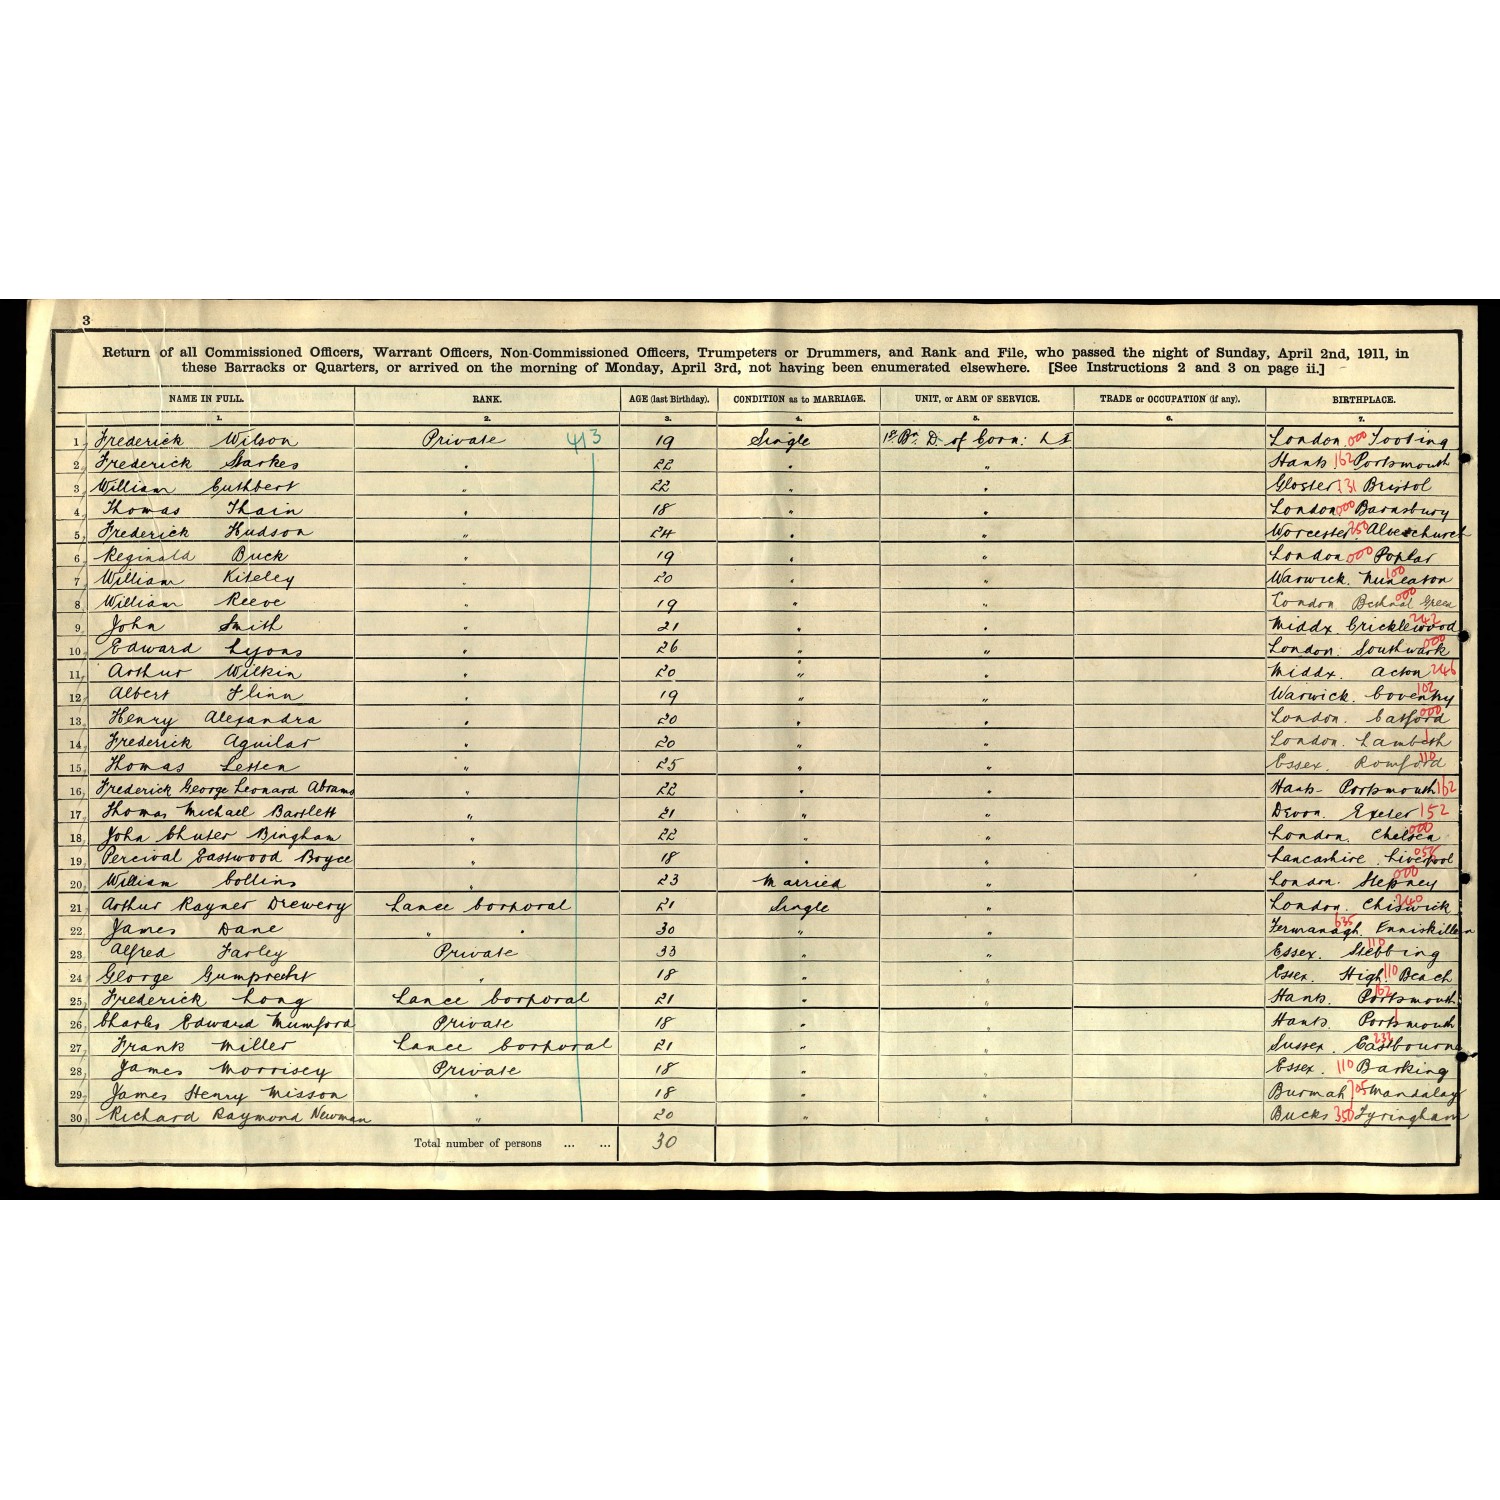 3
Return of all Commissioned Officers, Warrant Officers, Non-Commissioned Officers, Trumpeters or Drummers, and Rank and File, who passed the night of Sunday, April 2nd, 1911, in
these Barracks or Quarters, or arrived on the morning of Monday, April 3rd, not having been enumerated elsewhere. [See Instructions 2 and 3 on page ii.]
NAME IN FULL. RANK. AGE (last Birthday). CONDITION as to MARRIAGE. UNIT, or ARM OF SERVICE. TRADE or OCCUPATION (if any). BIRTHPLACE.
1. 2. 3. 4. 5. 6. 7.
1 Frederick Wilson Private 413 19 Single 1st Bn. D. of Corn: L I London. 000 Tooting
2 Frederick Starkes " 22 " " Hants 162 Portsmouth
3 William Cuthbert " 22 " " Gloster. 131 Bristol
4 Thomas Thain " 18 " " London 000 Barnsbury
5 Frederick Hudson " 24 " " Worcester 250 Alvechurch
6 Reginald Buck " 19 " " London 000 Poplar
7 William Kiteley " 20 " " Warwick. 100 Nuneaton
8 William Reeve " 19 " " London 000 Bethnal Green
9 John Smith " 21 " " Middx. 242 Cricklewood
10 Edward Lyons " 26 " " London: 000 Southwark
11 Arthur Wilkin " 20 " " Middx. Acton 246
12 Albert Flinn " 19 " " Warwick. 102 Coventry
13 Henry Alexandra " 20 " " London. 000 Catford
14 Frederick Aguilar " 20 " " London. Lambeth
15 Thomas Letten " 25 " " Essex. 110 Romford
16 Frederick George Leonard Abrams " 22 " " Hants Portsmouth 162
17 Thomas Michael Bartlett " 21 " " Devon. Exeter 152
18 John Chuter Bingham " 22 " " London. 000 Chelsea
19 Percival Eastwood Boyce " 18 " " Lancashire. Liverpool
20 William Collins " 23 Married " London. 000 Stepney
21 Arthur Rayner Drewery Lance Corporal 21 Single " London. 240 Chiswick
22 James Dane " " 30 " " Fermanagh. 635 Enniskillen
23 Alfred Farley Private 33 " " Essex. 110 Stebbing
24 George Gumprecht " 18 " " Essex. High 110 Beach
25 Frederick Long Lance Corporal 21 " " Hants. 162 Portsmouth
26 Charles Edward Mumford Private 18 " " Hants. Portsmouth
27 Frank Miller Lance Corporal 21 " " Sussex. 232 Eastbourne
28 James Morrisey Private 18 " " Essex. 110 Barking
29 James Henry Misson " 18 " " Burmah 705 Mandalay
30 Richard Raymond Newman " 20 " " Bucks 350 Tyringham
Total number of persons ... ... 30